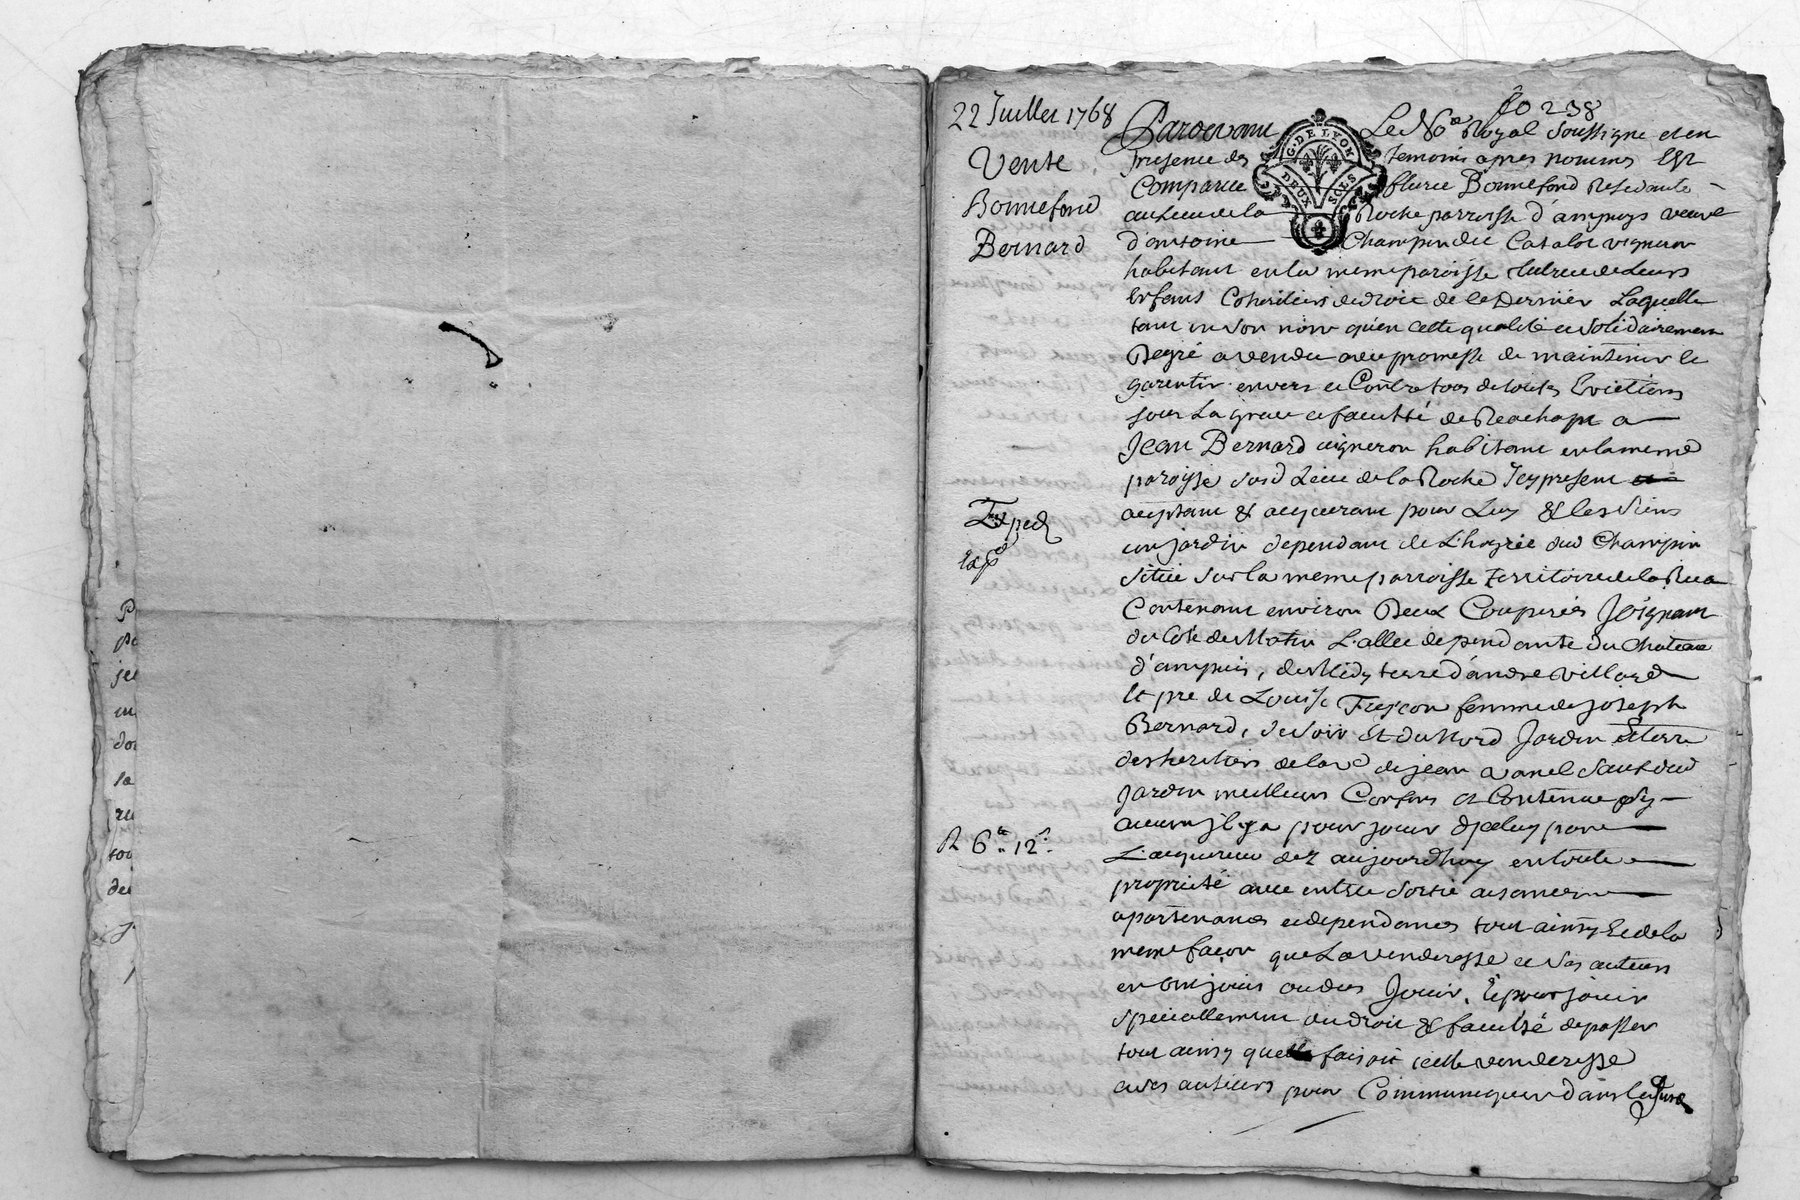 fo 238
22 Juillet 1768
Vente
Bonnefond
Bernard
Exped
R 6.# 12.s
G. DE LYON
DEUX SOLS
Pardevant Le No.re Royal soussigne et en
presence des temoins apres nommes Est
Comparue fleurie Bonnefond Residante
au Lieu de la Roche parroisse d'ampuys veuve
d'antoine Champin du Catalot vigneron
habitant en la meme paroisse tutrice de Leurs
Enfans Coheritiers de droit de ce Dernier Laquelle
tant en son nom qu'en cette qualité et solidairement
Degré a vendu avec promesse de maintenir le
garentir envers et Contre tous de toutes Evictions
sous La grace et faculté de Reachapt a
Jean Bernard vigneron habitant en la meme
paroisse susd Lieu de la Roche Icy present
acceptant & acquerant pour Luy & les siens
un jardin dependant de L'hoyrie dud Champin
situé sur la meme parroisse territoire de la
Contenant environ Deux Couperées Joignant
du Coté du Matin L'allee dependante du Chateau
d'ampuis, du Midy terre d'andre Villard
Et pre de Louise femme de joseph
Bernard, du soir Et du Nord Jardin et terre
des heritiers de la de jean sauf dud
Jardin meilleurs Confins et Contenue sy
aucun jl y a pour jouir d'jceluy par
L'acquereur dez aujourdhuy en toute
proprieté avec entrée sortie aisances
apartenances et dependances tout ainsy Et de la
meme façon que La venderesse et ses auteurs
en ont jouis ou dus Jouir, Et pour jouir
specialement du droit & faculté de passer
tout ainsy que faisoit icelle venderesse
et ses auteurs pour Communiquer dans
P
je
la
tou